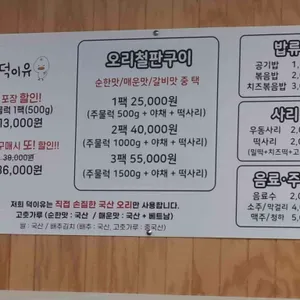 덕이유
포장 할인!
물럭 1팩(500g)
13,000원
구매시 또! 할인!!
38,000원
36,000원
오리철판구이
순한맛/매운맛/갈비맛 중 택
1팩 25,000원
(주물럭 500g + 야채 + 떡사리)
2팩 40,000원
(주물럭 1000g + 야채 + 떡사리)
3팩 55,000원
(주물럭 1500g + 야채 + 떡사리)
저희 덕이유는 직접 손질한 국산 오리만 사용합니다.
고춧가루 (순한맛 : 국산 / 매운맛 : 국산 + 베트남)
쌀 : 국산 / 배추김치 (배추 : 국산, 고춧가루 : 중국산)
밥류
공기밥 1,
볶음밥 2,
치즈볶음밥 3,
사리
우동사리 2,0
떡사리 2,0
(밀떡+치즈떡+고
음료·주
음료수 2,0
소주/막걸리 4,
맥주/청하 5,